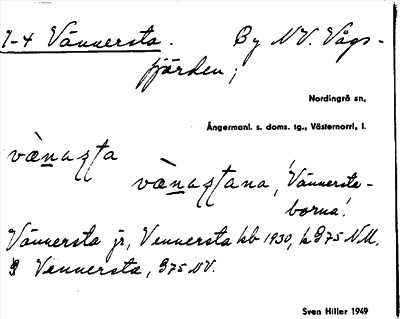 1-4 Vännersta. By NV. Vågs-
fjärden;
Nordingrå sn,
Ångermanl. s. doms. tg., Västernorrl. l.
vä̀naʂʈa
vä̀naʂʈana, 'Vännersta-
borna'.
Vännersta jr, Vennersta kb 1930, k 375 N.M.
Vennersta, 375 NV.
Sven Hiller 1949